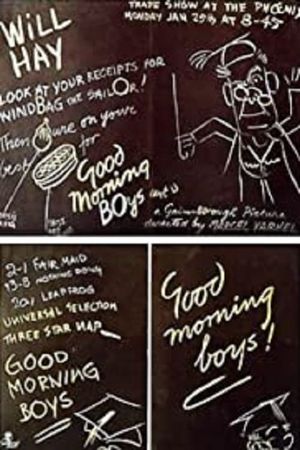 TRADE SHOW AT THE PHOENIX
MONDAY JAN 25th AT 8-45
WILL
HAY
LOOK AT YOUR RECEIPTS FOR
WINDBAG THE SAILOR!
Then on your
best for
Good
Morning
BOYS (cert U)
a Gainsborough Picture
directed by MARCEL VARNEL
2-1 FAIR MAID
13-8 NOTHING DOING
20/1 LEAPFROG
UNIVERSAL SELECTION
THREE STAR NAP
GOOD
MORNING
BOYS
Good
morning
boys!